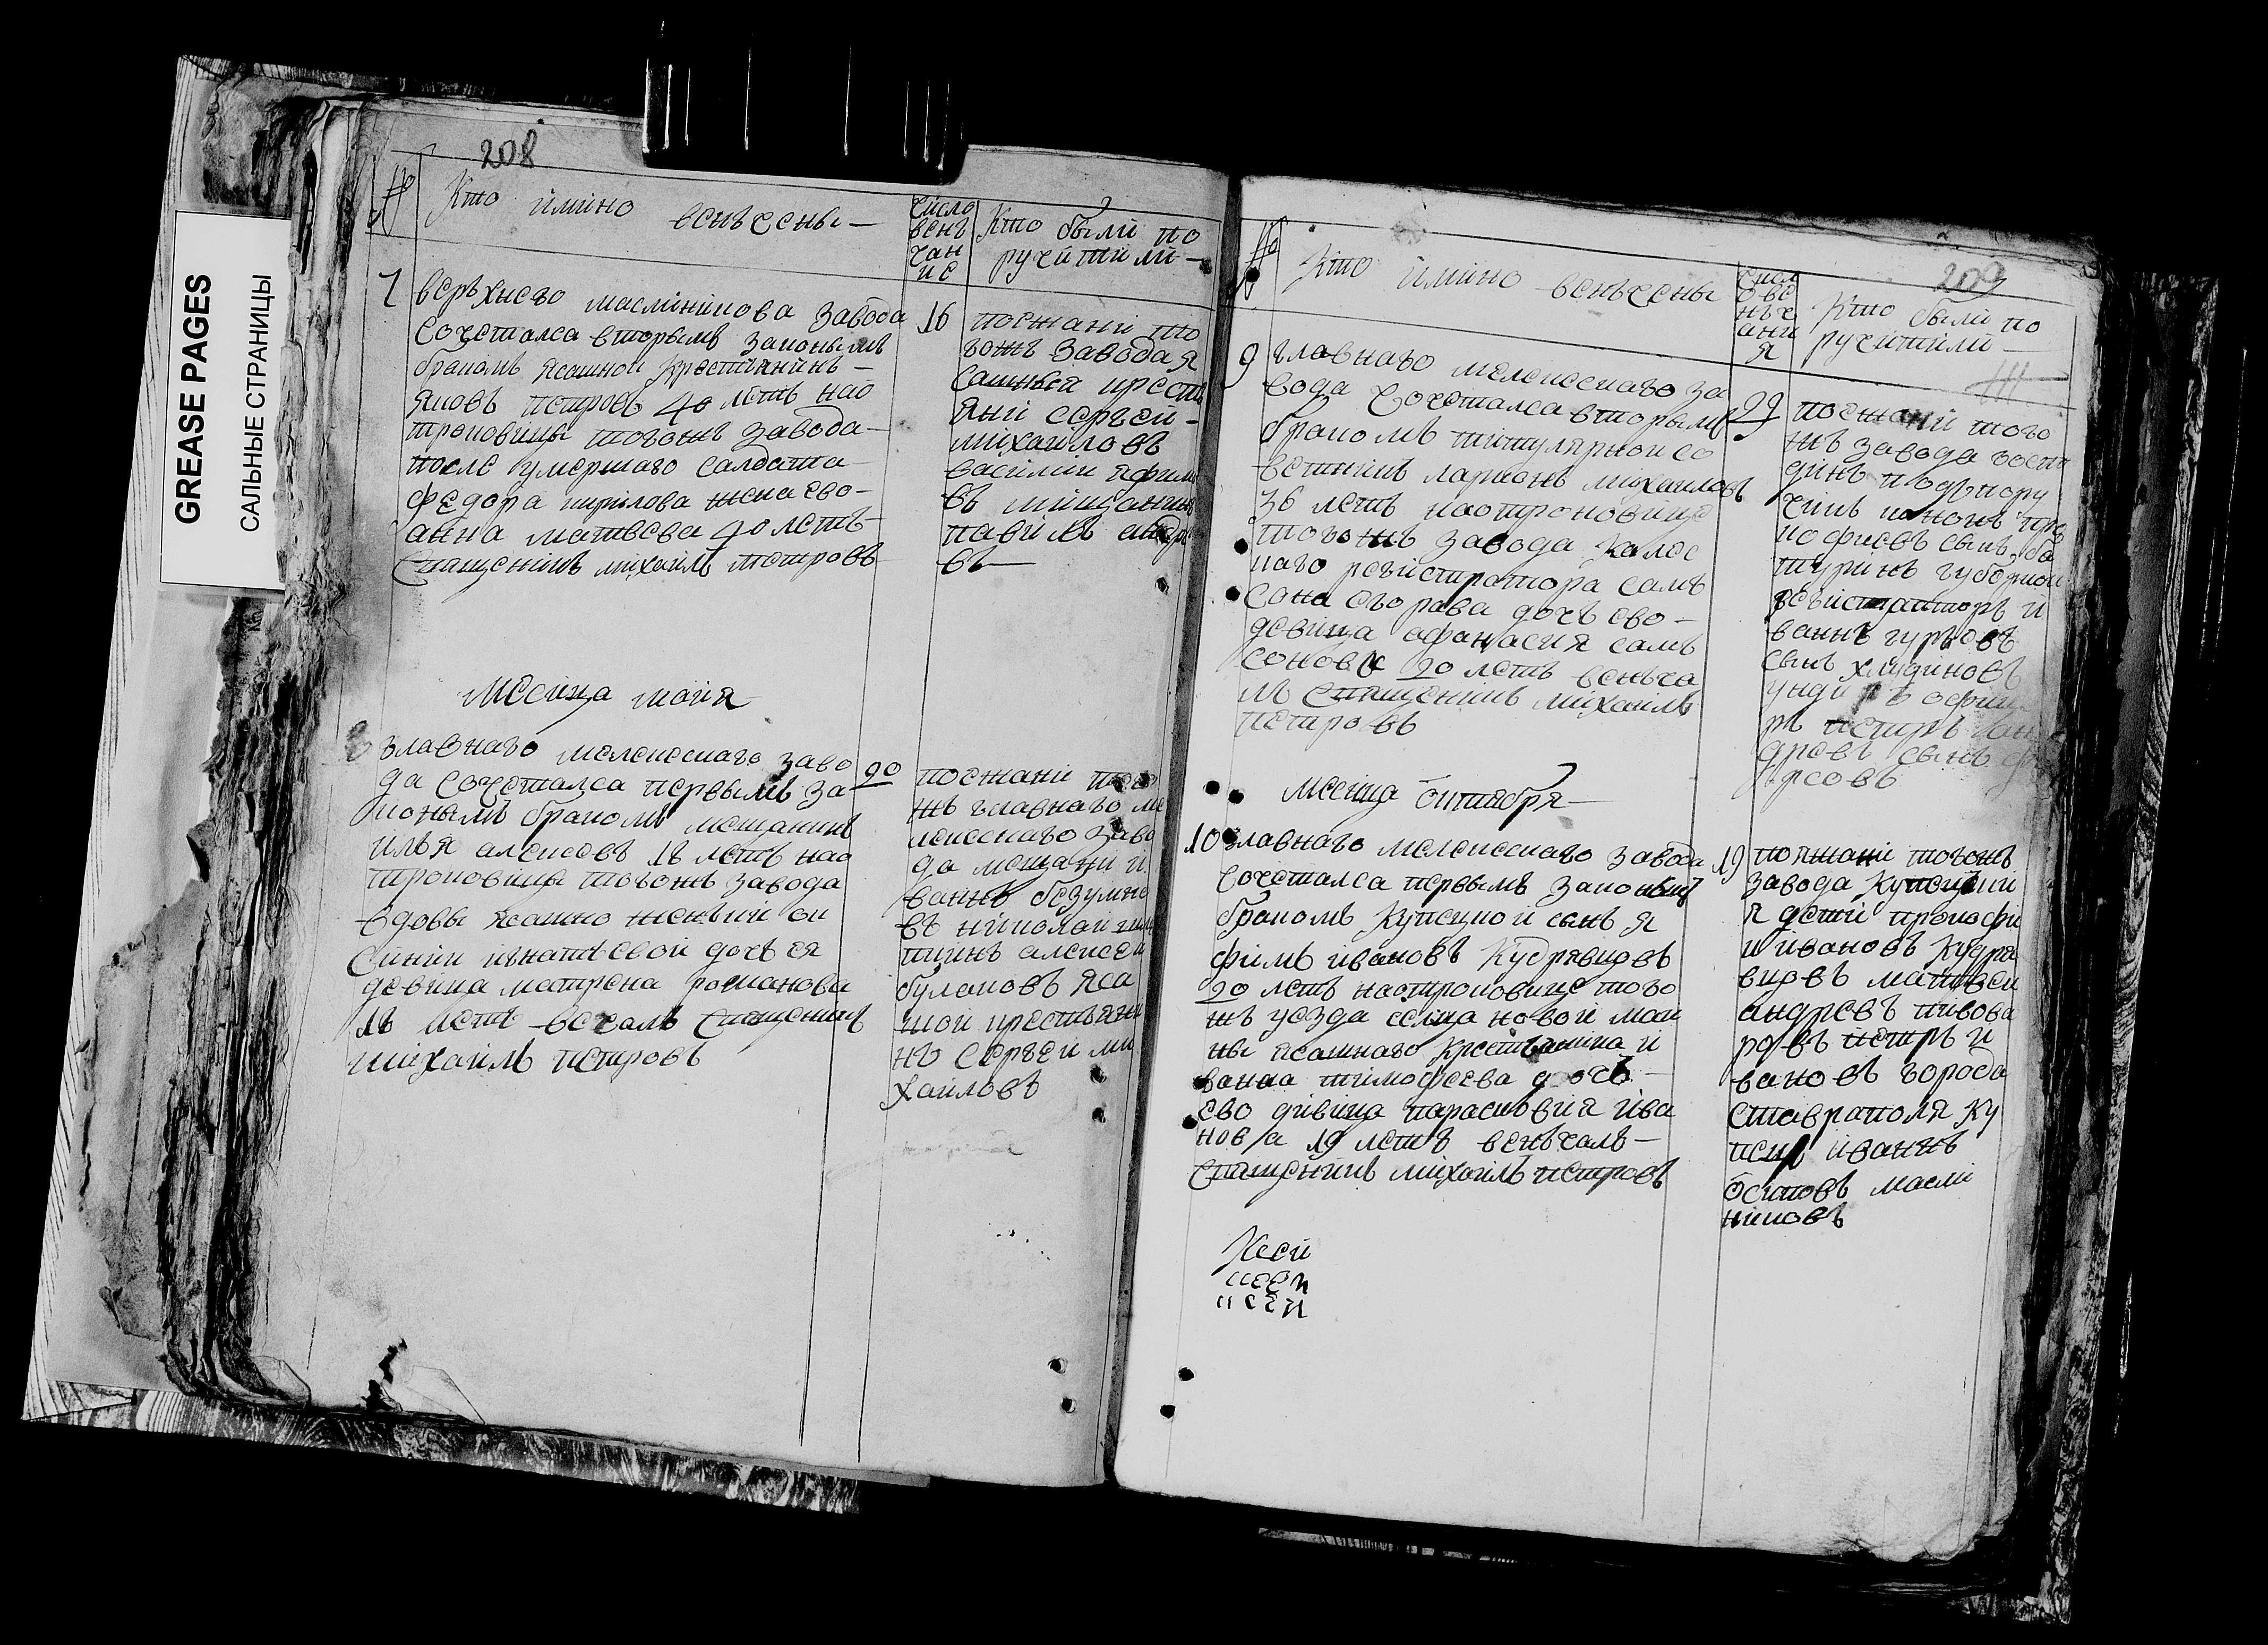 GREASE PAGES
САЛЬНЫЕ СТРАНИЦЫ
208
№
Кто имино венъчены
число
венъ
чан
ие
Кто были по
ручители
7
веръхнего маслиникова завода
сочетался вторымъ законымъ
браком ясашной крестиянинъ
яковъ петровъ 40 летъ пао
троковицы тогожъ завода
после умершаго салдата
федора кирилова жена ево
анна матвева 40 летъ
священикъ михаилъ петровъ
16
поежани то
гожъ завода я
сашныи крести
яни серъгеи
михаиловъ
василии яфимо
въ мищанинъ
павилъ андре
въ
месица маия
8
главнаго мелекескаго заво
да сочетался первымъ за
конымъ бракомъ мещанинъ
илья алексевъ 18 летъ нао
троковицы тогожъ завода
вдовы ясашно женъки
игнатьевои дочъ ея
девица матрена романова
18 летъ священикъ
михаилъ петровъ
20
поежани того
жъ главнаго ме
лекескаго заво
да мещани и
ванъ безумно
въ николаи
алексеи
булановъ яса
шнои крестьяни
нъ серъгеи ми
хаиловъ
209
№
Кто имино венъчены
числ
о ве
нъч
ани
я
Кто были по
ручители
9
главнаго мелекескаго за
вода сочетался вторымъ
бракомъ титулярнои со
ветникъ ларионъ михаиловъ
36 летъ наотроковице
тогожъ завода калес
каго регистратора сам
сона егорава дочъ ево
девица афанасия сам
сонова 20 летъ венъча
лъ священикъ михаилъ
петровъ
29
поежани того
жъ завода госпо
динъ подъпору
чикъ про
кофиевъ сынъ ба
туринъ губернои
регистраторъ и
ванъ гурьевъ
сынъ хлудиновъ
унди ръ офице
ръ петръ
древъ сынъ
месица октября
10
главнаго мелекескаго завода
сочетался первымъ законымъ
бракомъ купецкой сынъ я
фимъ ивановъ кудрявцовъ
20 летъ наотроковице того
жъ уезда селца новой маи
ны ясашнаго крестьянина и
вана тимофеева дочъ
ево дивица парасковия ива
нова 19 летъ венъчалъ
священикъ михаилъ петровъ
19
поежани тогожъ
завода купецкии
я дети прокофи
и ивановъ кудря
вцовъ матвеи
андревъ пивова
ровъ петръ и
вановъ города
ставраполя ку
пецъ иванъ
осиповъ масли
никовъ